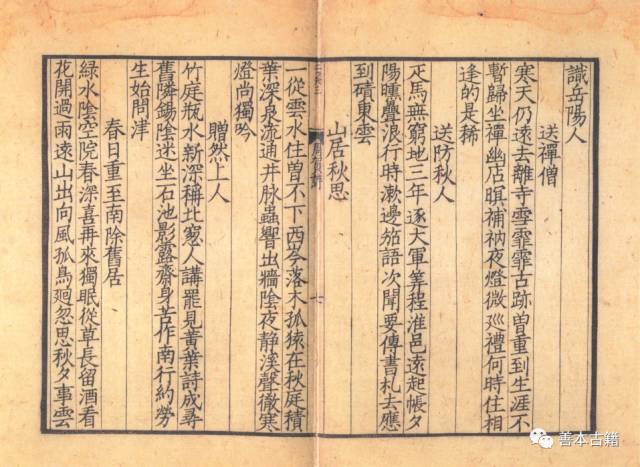 識岳陽人
送禪僧
寒天仍遠去離寺雪霏霏古跡曾重到生涯不
暫歸坐禪幽店暝補衲夜燈微巡禮何時住相
逢的是稀
送防秋人
疋馬無窮地三年逐大軍筭程淮邑遠起帳夕
陽曛疊浪行時漱邊笳語次聞要傳書札去應
到磧東雲
山居秋思
七
一從雲水住曾不下西岑落木孤猿在秋庭積
葉深泉流通井脉蟲響出牆陰夜靜溪聲徹寒
燈尚獨吟
贈然上人
竹庭瓶水新深稱北窓人講罷見黃葉詩成尋
舊隣錫陰迷坐石池影露齋身苦作南行約勞
生始問津
春日重至南除舊居
綠水陰空院春深喜再來獨眠從草長留酒看
花開過雨遠山出向風孤鳥廻忽思秋夕事雲
善本古籍